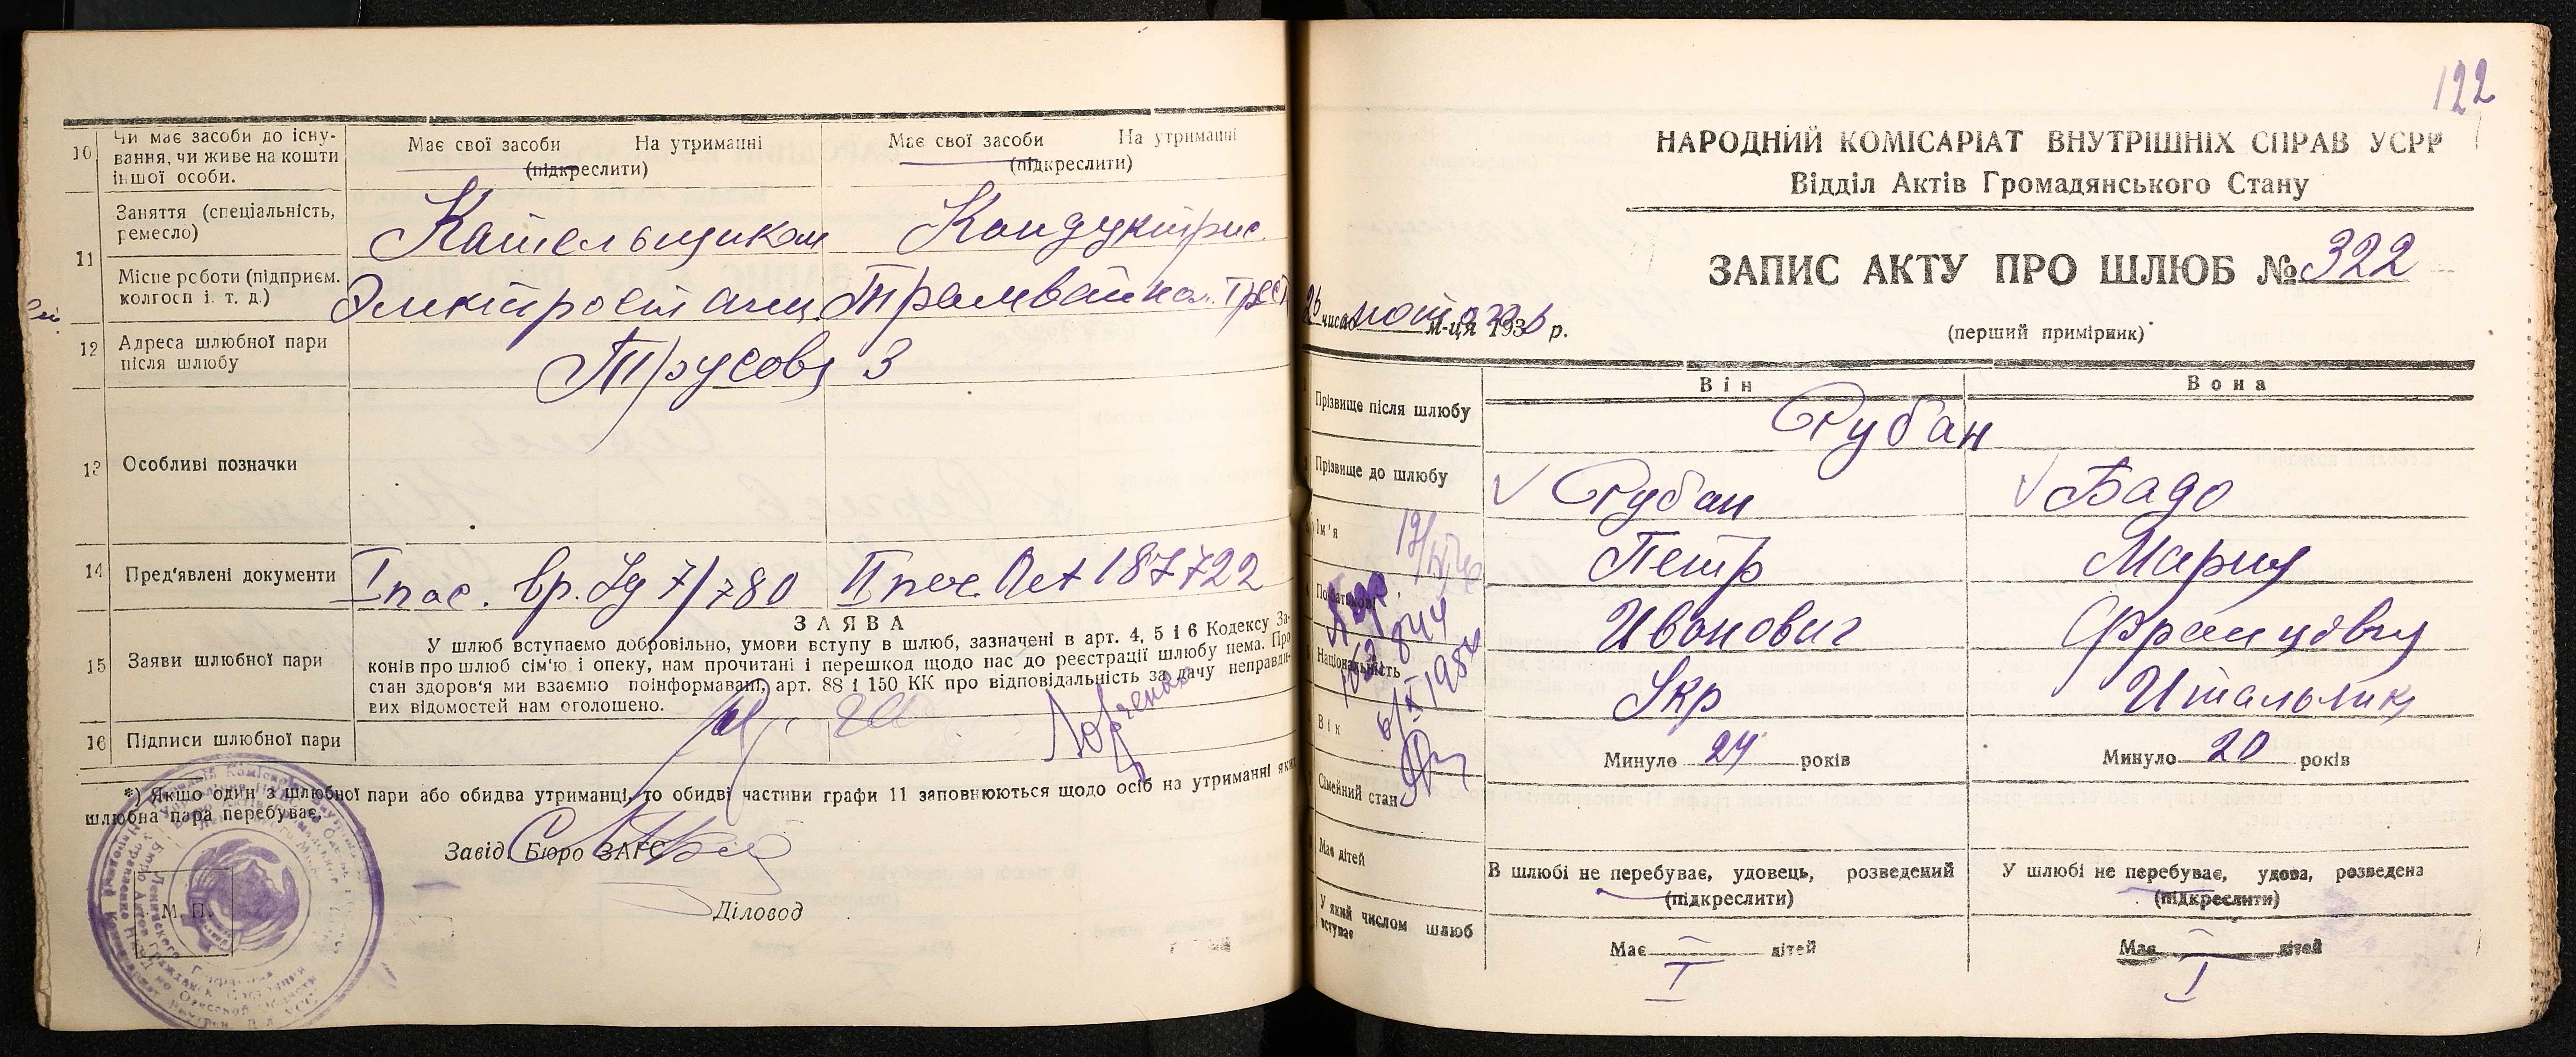 10 Чи має засоби до існу-
вання, чи живе на кошти
іншої особи.
Має свої засоби На утриманні
(підкреслити)
Має свої засоби На утриманні
(підкреслити)
11 Заняття (спеціальність,
ремесло)
Кательщиком
Кондуктрис.
Місце роботи (підприєм.
колгосп і. т. д.)
Электростанц
Трамвайн. Трест
12 Адреса шлюбної пари
після шлюбу
Трусова 3
13 Особливі позначки
14 Пред'явлені документи
I пас. вр.
7/780
II
187722
15 Заяви шлюбної пари
ЗАЯВА
У шлюб вступаємо добровільно, умови вступу в шлюб, зазначені в арт. 4, 5 і 6 Кодексу За-
конів про шлюб сім'ю і опеку, нам прочитані і перешкод щодо нас до реєстрації шлюбу нема. Про
стан здоров'я ми взаємно поінформавані, арт. 88 і 150 КК про відповідальність за дачу неправди-
вих відомостей нам оголошено.
16 Підписи шлюбної пари
*) Якщо один з шлюбної пари або обидва утриманці, то обидві частини графи 11 заповнюються щодо осіб на утриманні яких
шлюбна пара перебуває.
Завід. Бюро ЗАГС
Діловод
М. П.
122
НАРОДНИЙ КОМІСАРІАТ ВНУТРІШНІХ СПРАВ УСРР
Відділ Актів Громадянського Стану
ЗАПИС АКТУ ПРО ШЛЮБ № 322
26 число м-ця 1936 р.
(перший примірник)
Він
Вона
Прізвище після шлюбу
Рубан
Прізвище до шлюбу
Рубан
Бадо
Ім'я
Петр
Мария
По батькові
Иванович
Францовна
Національність
Укр
Итальянк
Вік
Минуло 24 років
Минуло 20 років
Сімейний стан
Має дітей
В шлюбі не перебуває, удовець, розведений
(підкреслити)
У шлюбі не перебуває, удова, розведена
(підкреслити)
У який числом шлюб
вступає
Має — дітей
Має — дітей
I
I